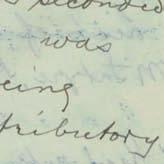 seconded
was
being
tributory